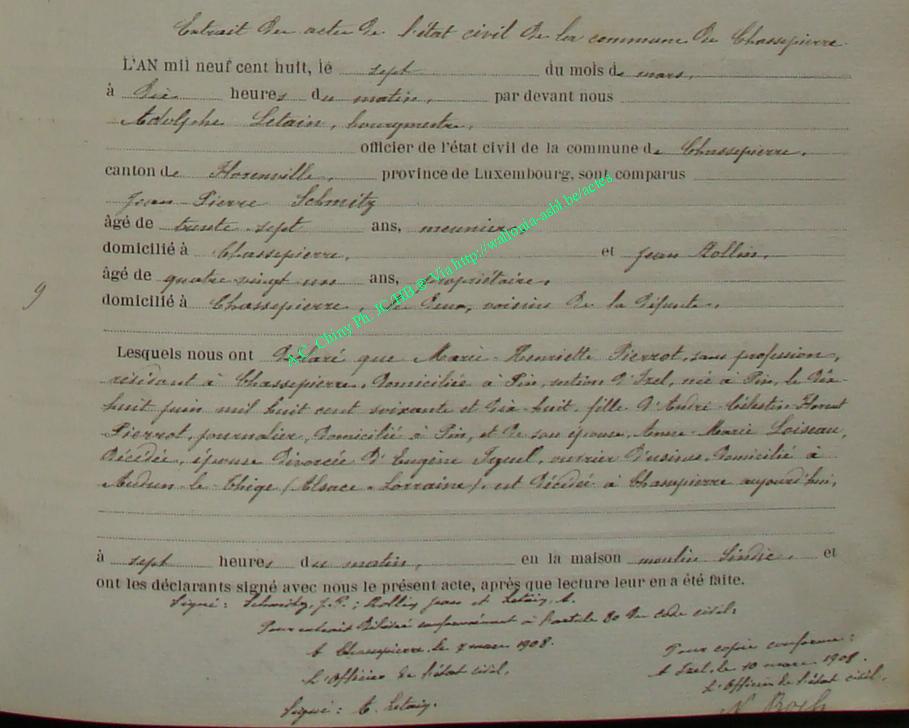 Extrait des actes de l'état civil de la commune de Chassepierre
L'AN mil neuf cent huit, le sept du mois de mars,
à dix heures du matin, par devant nous
Adolphe Letain, bourgmestre,
officier de l'état civil de la commune de Chassepierre,
canton de Florenville, province de Luxembourg, sont comparus
Jean Pierre Schmitz
âgé de trente-sept ans, meunier,
domicilié à Chassepierre, et Jean Rollin,
âgé de quatre vingt un ans, propriétaire,
domicilié à Chassepierre, les deux, voisins de la défunte,
9
Lesquels nous ont déclaré que Marie-Henriette Pierrot, sans profession,
résidant à Chassepierre, domiciliée à Pin, section d'Izel, née à Pin, le dix-
huit juin mil huit cent soixante et dix-huit, fille d'André-Célestin-Florent
Pierrot, journalier, domicilié à Pin, et de son épouse, Anne-Marie Loiseau,
décédée, épouse divorcée d'Eugène, ouvrier d'usines, domicilié à
Audun-le-Thige (Alsace-Lorraine), est décédée à Chassepierre aujourd'hui,
à sept heures du matin, en la maison moulin Lindic, et
ont les déclarants signé avec nous le présent acte, après que lecture leur en a été faite.
Signé: Schmitz, J.P.; Rollin Jean et Letain, A.
Pour extrait délivré conformément à l'article 80 du code civil:
A Chassepierre, le 7 mars 1908.
L'Officier de l'état civil,
Signé: A. Letain.
Pour copie conforme:
A Izel, le 10 mars 1908.
L'Officier de l'état civil,
N. Roch
A.C. Chiny Ph. JC/BB @ Via http://wallonia-asbl.be/actes